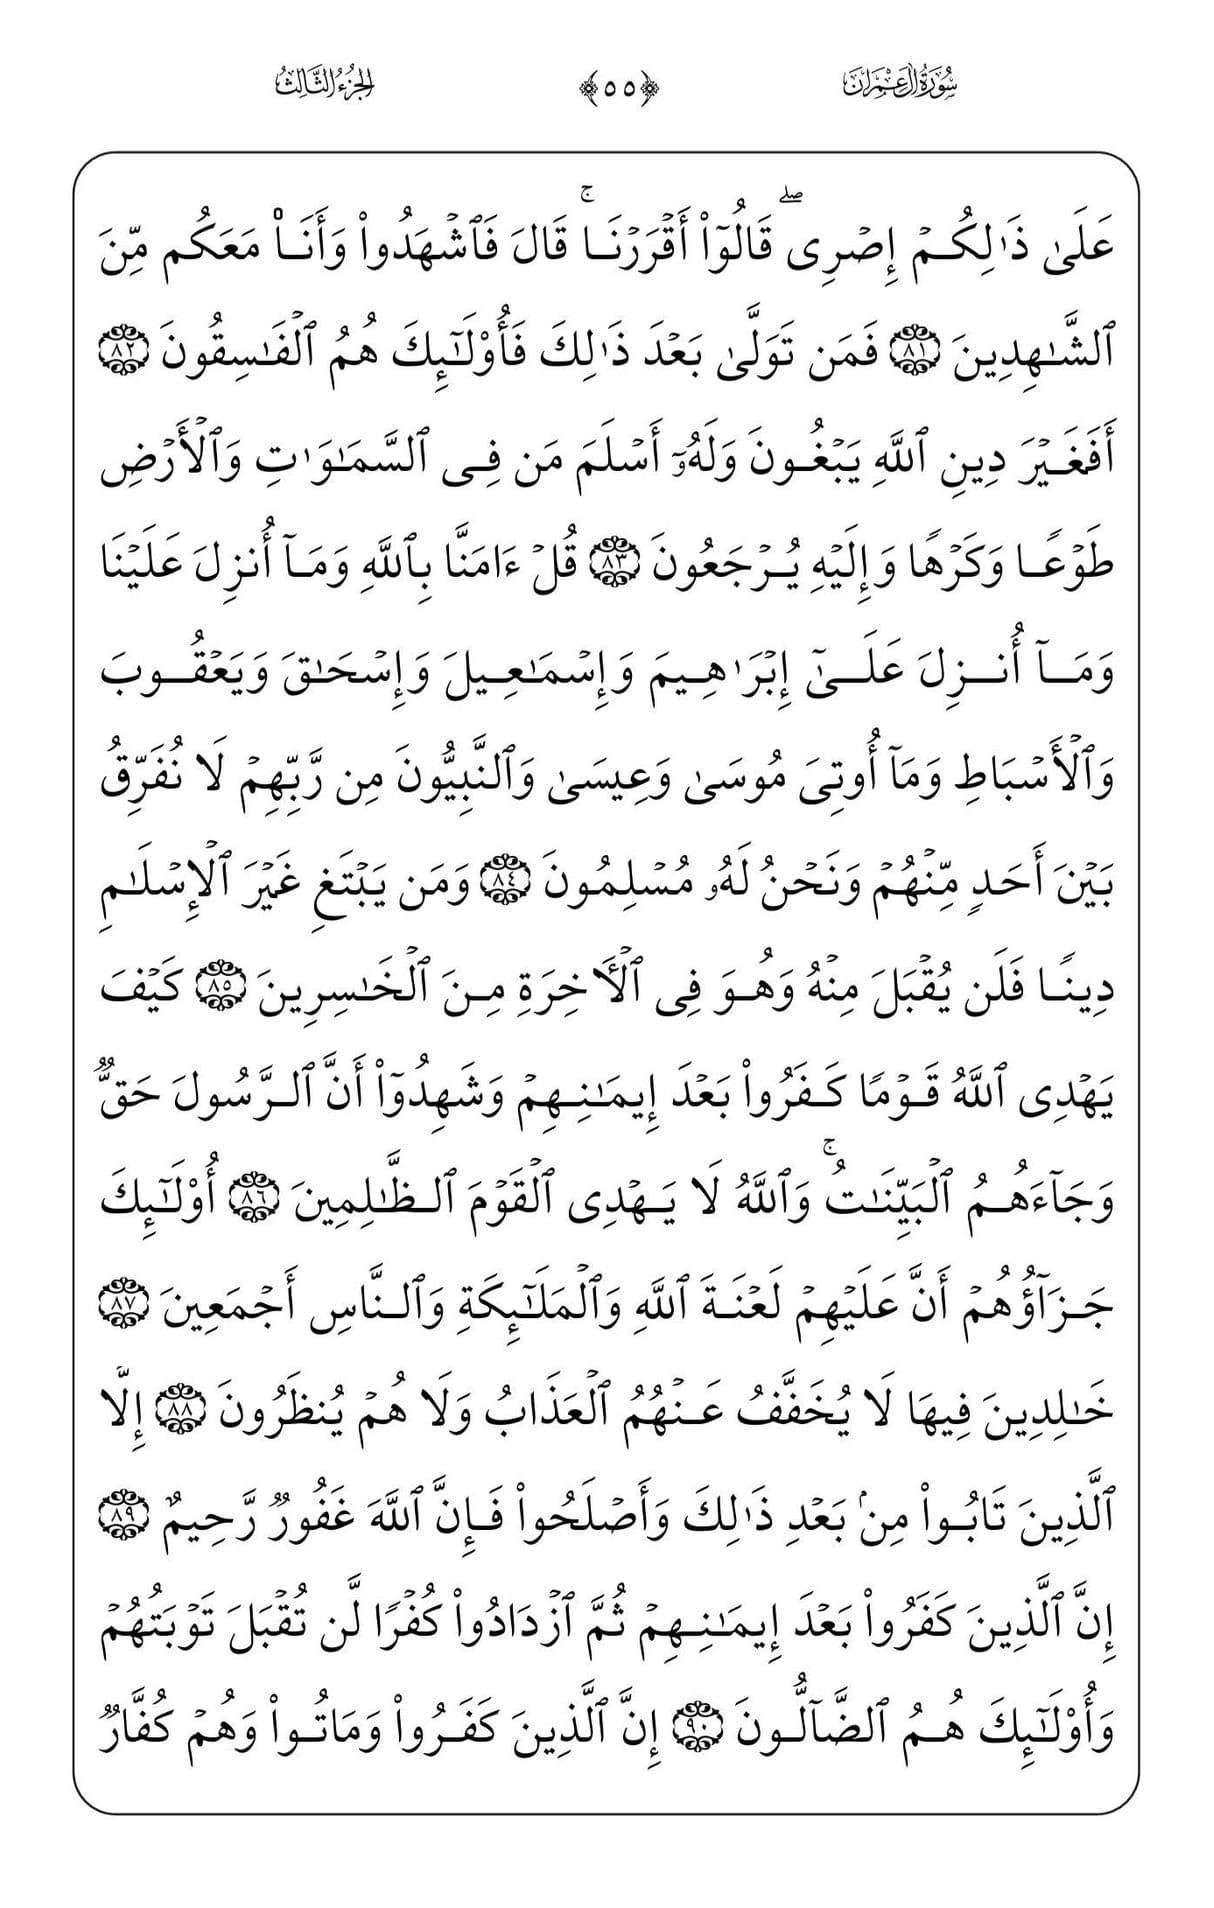 سُورَةُ آلِ عِمْرَانَ ﴿٥٥﴾ الجُزْءُ الثَّالِثُ
عَلَىٰ ذَٰلِكُمْ إِصْرِى ۖ قَالُوٓا۟ أَقْرَرْنَا ۚ قَالَ فَٱشْهَدُوا۟ وَأَنَا۠ مَعَكُم مِّنَ
ٱلشَّـٰهِدِينَ ٨١ فَمَن تَوَلَّىٰ بَعْدَ ذَٰلِكَ فَأُو۟لَـٰٓئِكَ هُمُ ٱلْفَـٰسِقُونَ ٨٢
أَفَغَيْرَ دِينِ ٱللَّهِ يَبْغُونَ وَلَهُۥٓ أَسْلَمَ مَن فِى ٱلسَّمَـٰوَٰتِ وَٱلْأَرْضِ
طَوْعًا وَكَرْهًا وَإِلَيْهِ يُرْجَعُونَ ٨٣ قُلْ ءَامَنَّا بِٱللَّهِ وَمَآ أُنزِلَ عَلَيْنَا
وَمَآ أُنزِلَ عَلَىٰٓ إِبْرَٰهِيمَ وَإِسْمَـٰعِيلَ وَإِسْحَـٰقَ وَيَعْقُوبَ
وَٱلْأَسْبَاطِ وَمَآ أُوتِىَ مُوسَىٰ وَعِيسَىٰ وَٱلنَّبِيُّونَ مِن رَّبِّهِمْ لَا نُفَرِّقُ
بَيْنَ أَحَدٍ مِّنْهُمْ وَنَحْنُ لَهُۥ مُسْلِمُونَ ٨٤ وَمَن يَبْتَغِ غَيْرَ ٱلْإِسْلَـٰمِ
دِينًا فَلَن يُقْبَلَ مِنْهُ وَهُوَ فِى ٱلْـَٔاخِرَةِ مِنَ ٱلْخَـٰسِرِينَ ٨٥ كَيْفَ
يَهْدِى ٱللَّهُ قَوْمًا كَفَرُوا۟ بَعْدَ إِيمَـٰنِهِمْ وَشَهِدُوٓا۟ أَنَّ ٱلرَّسُولَ حَقٌّ
وَجَآءَهُمُ ٱلْبَيِّنَـٰتُ ۚ وَٱللَّهُ لَا يَهْدِى ٱلْقَوْمَ ٱلظَّـٰلِمِينَ ٨٦ أُو۟لَـٰٓئِكَ
جَزَآؤُهُمْ أَنَّ عَلَيْهِمْ لَعْنَةَ ٱللَّهِ وَٱلْمَلَـٰٓئِكَةِ وَٱلنَّاسِ أَجْمَعِينَ ٨٧
خَـٰلِدِينَ فِيهَا لَا يُخَفَّفُ عَنْهُمُ ٱلْعَذَابُ وَلَا هُمْ يُنظَرُونَ ٨٨ إِلَّا
ٱلَّذِينَ تَابُوا۟ مِنۢ بَعْدِ ذَٰلِكَ وَأَصْلَحُوا۟ فَإِنَّ ٱللَّهَ غَفُورٌ رَّحِيمٌ ٨٩
إِنَّ ٱلَّذِينَ كَفَرُوا۟ بَعْدَ إِيمَـٰنِهِمْ ثُمَّ ٱزْدَادُوا۟ كُفْرًا لَّن تُقْبَلَ تَوْبَتُهُمْ
وَأُو۟لَـٰٓئِكَ هُمُ ٱلضَّآلُّونَ ٩٠ إِنَّ ٱلَّذِينَ كَفَرُوا۟ وَمَاتُوا۟ وَهُمْ كُفَّارٌ